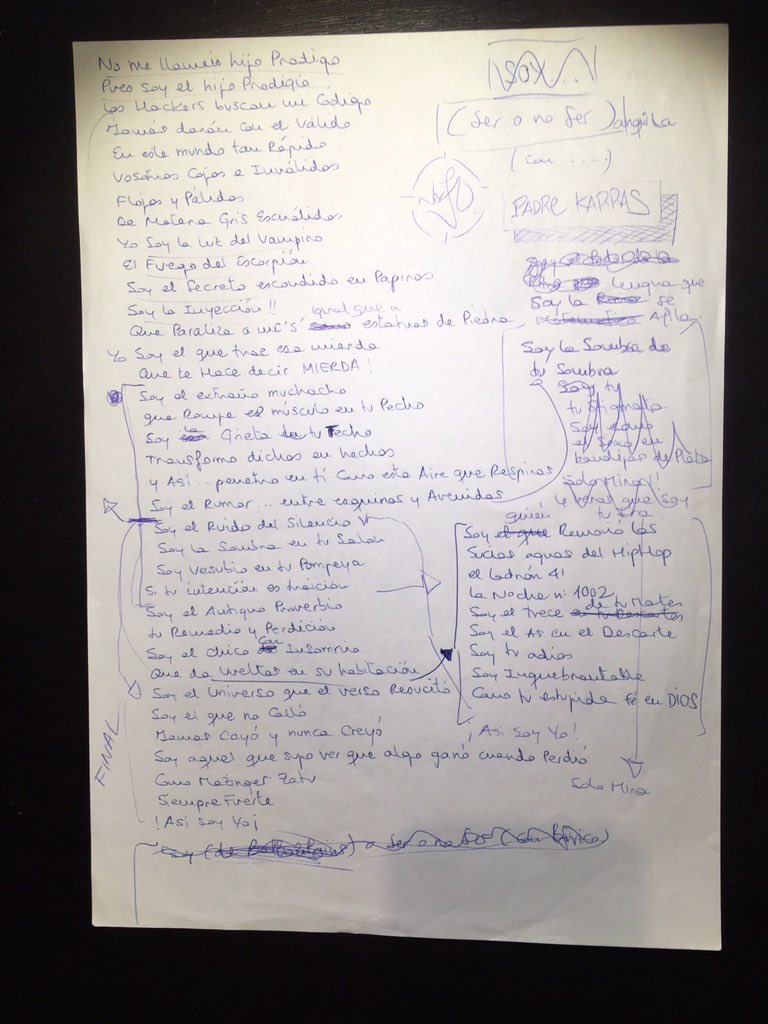 No me llameis hijo Prodigo
Pues soy el hijo Prodigio
Los Hackers buscan mi Código
Jamás darán con el Válido
En este mundo tan Rápido
Vosotros Cojos e Inválidos
Flojos y Pálidos
De Materia Gris Escuálidos
Yo Soy la luz del Vampiro
El Fuego del Escorpión
Soy el Secreto escondido en Papiros
Soy la Inyección!!
igual que a
Que Paraliza a MC'S estatuas de Piedra
Yo Soy el que trae esa mierda
Que te Hace decir MIERDA!
Soy el extraño muchacho
que Rompe el músculo en tu Pecho
Soy la Grieta de tu Techo
Transformo dichos en hechos
y Así... penetro en tí Como este Aire que Respiras
Soy el Rumor... entre esquinas y Avenidas
Soy el Ruido del Silencio
Soy la Sombra en tu Salón
Soy Vesubio en tu Pompeya
Si tu intención es traición
Soy el Antiguo Proverbio
tu Remedio y Perdición
Soy el chico con Insomnio
Que da vueltas en su habitación
Soy el Universo que el verso Resucitó
Soy el que no Calló
Jamas Cayó y nunca Creyó
Soy aquel que supo ver que algo ganó cuando Perdió
Como Mazinger Zeta
Siempre Fuerte
!Así Soy Yo¡
FINAL
a Ser o no Ser
SOY...
(Ser o no Ser)
(con ......)
YO
PADRE KARRAS
lengua que
Soy la se
Afila
Soy la Sombra de
tu Sombra
Soy tu
tu Stigmata
Soy como
el Sexo en
bandejas de Plata
Solo Mira!!
y verás que Soy
tu Ira
quién
Soy el que Removió las
Sucias aguas del HipHop
el ladrón 41
la Noche nº 1002
de tu Martes
Soy el trece
Soy el As en el Descarte
Soy tu adios
Soy Inquebrantable
Como tu estúpida fé en DIOS
¡Así Soy Yo!
Solo Mira